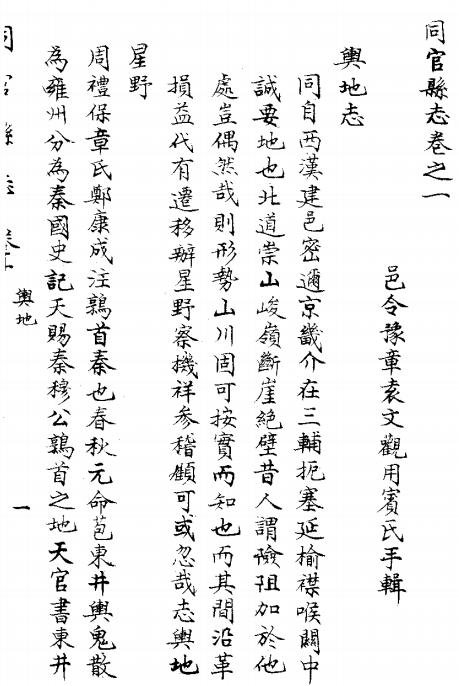 同官縣志卷之一
邑令豫章袁文觀用賓氏手輯
輿地志
同自西漢建邑密邇京畿介在三輔扼塞延榆襟喉關中
誠要地也北道崇山峻嶺斷崖絕壁昔人謂險阻加於他
處豈偶然哉則形勢山川固可按實而知也而其間沿革
損益代有遷移辦星野察機祥參稽顧可或忽哉志輿地
星野
周禮保章氏鄭康成注鶉首秦也春秋元命苞東井輿鬼散
為雍州分為秦國史記天賜秦穆公鶉首之地天官書東井
同官縣志
輿地
一